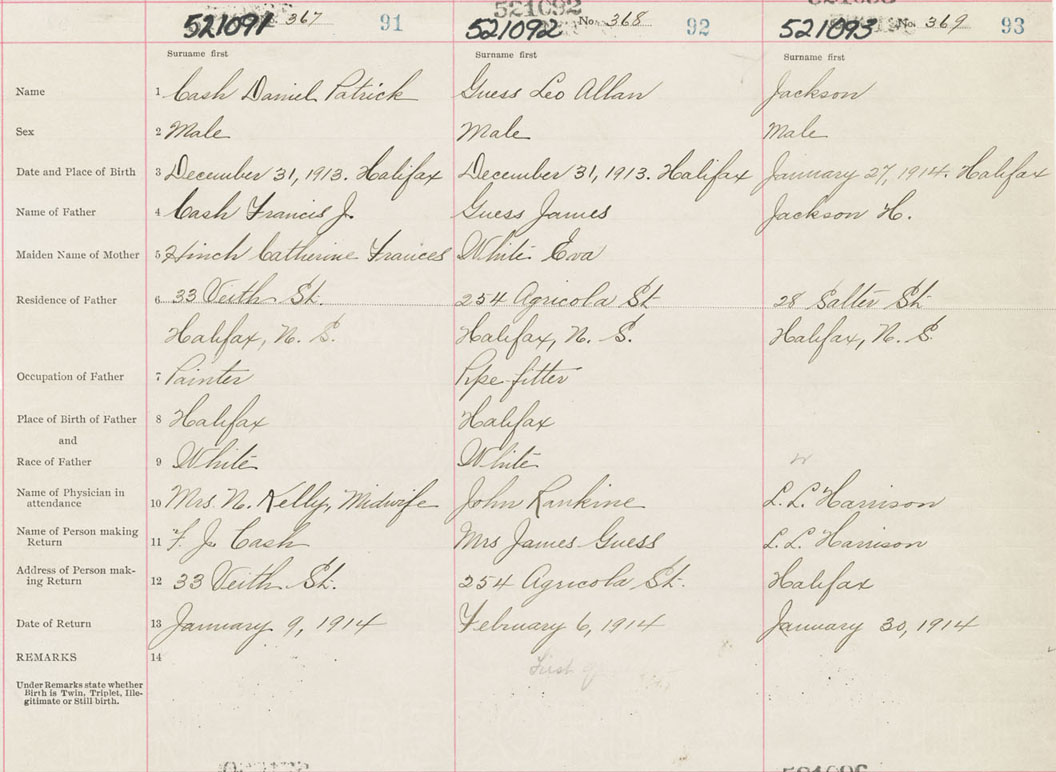 521092
521091 367 91 521092 No. 368 92 521093 No. 369 93
Surname first Surname first Surname first
Name 1 Cash Daniel Patrick Guess Leo Allan Jackson
Sex 2 Male Male Male
Date and Place of Birth 3 December 31, 1913. Halifax December 31, 1913. Halifax January 27, 1914. Halifax
Name of Father 4 Cash Francis J. Guess James Jackson H.
Maiden Name of Mother 5 Hinch Catherine Frances White Eva
Residence of Father 6 33 Veith St. 254 Agricola St 28 Salter St.
Halifax, N. S. Halifax, N. S. Halifax, N. S.
Occupation of Father 7 Painter Pipe-fitter
Place of Birth of Father 8 Halifax Halifax
and
Race of Father 9 White White W
Name of Physician in
attendance 10 Mrs. N. Kelly, Midwife John Rankine L. L. Harrison
Name of Person making
Return 11 F. J. Cash Mrs James Guess L. L. Harrison
Address of Person mak-
ing Return 12 33 Veith St. 254 Agricola St. Halifax
Date of Return 13 January 9, 1914 February 6, 1914 January 30, 1914
REMARKS 14
First of
Under Remarks state whether
Birth is Twin, Triplet, Ille-
gitimate or Still birth.